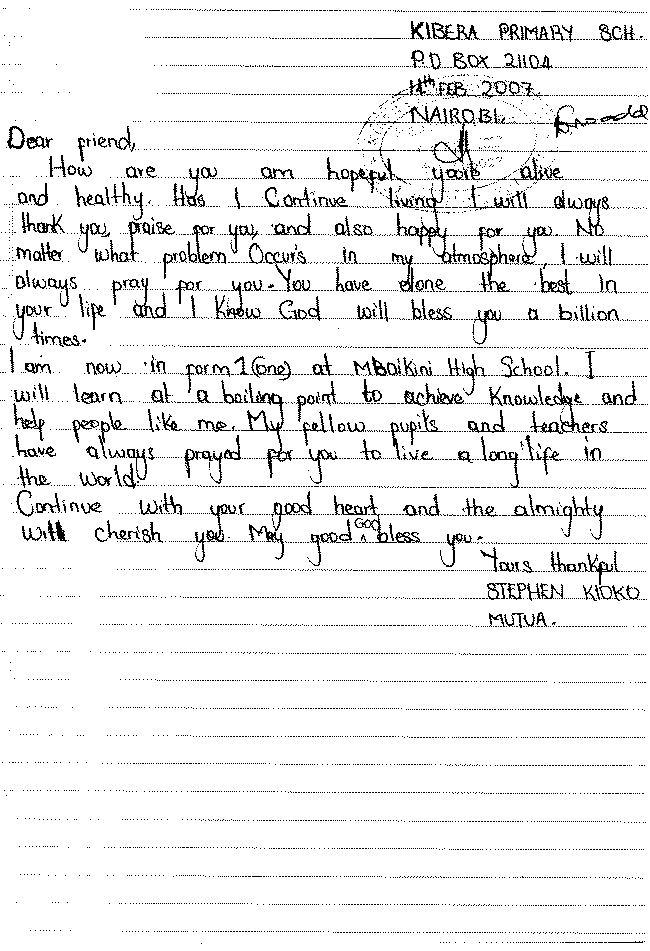 KIBERA PRIMARY SCH.
P.O BOX 21104
11th FEB 2007.
NAIROBI.
Dear friend,
How are you am hopeful you're alive
and healthy. Has I Continue living I will always
thank you, praise for you, and also happy for you. No
matter what problem Occur's in my atmosphere, I will
always pray for you. You have done the best in
your life and I Know God will bless you a billion
times.
I am now in form 1 (one) at MBaikini High School. I
will learn at a boiling point to achieve Knowledge and
help people like me. My fellow pupils and teachers
have always prayed for you to live a long life in
the world.
Continue with your good heart and the almighty
will cherish you. May good GOD bless you.
Yours thankful
STEPHEN KIOKO
MUTUA.